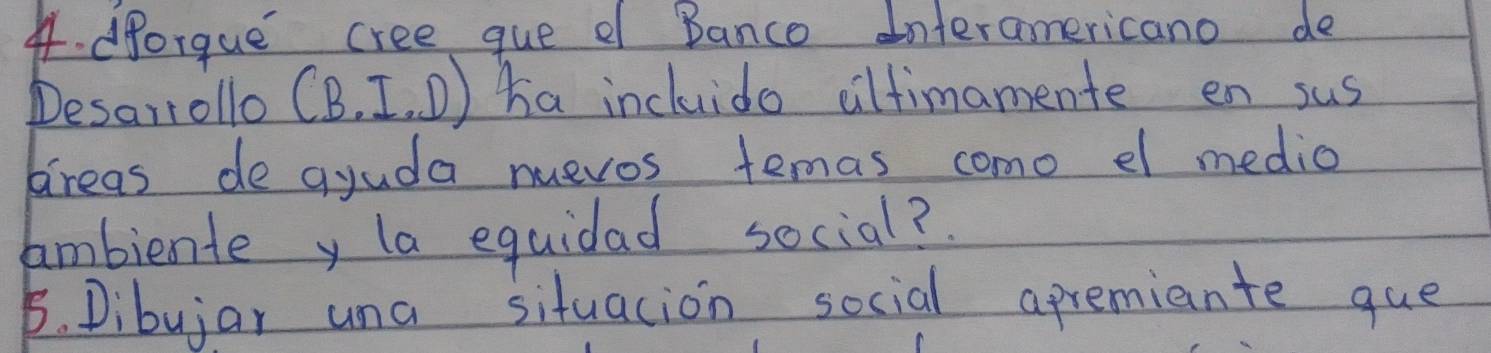 4. ¿Porqué cree que el Banco Interamericano de
Desarrollo (B.I.D) ha incluido últimamente en sus
áreas de ayuda nuevos temas como el medio
ambiente y la equidad social?.
5. Dibujar una situación social apremiante que